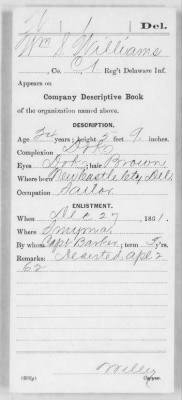 W | Del.
Wm S Williams
, Co. C, 1 Reg't Delaware Inf.
Appears on
Company Descriptive Book
of the organization named above.
DESCRIPTION.
Age years; height 5 feet 9 inches.
Complexion Dark
Eyes Dark; hair Brown
Where born New Castle Cty Del
Occupation Sailor
ENLISTMENT.
When Dec 27, 1861.
Where Smyrna
By whom Capt Barker; term 3 y'rs.
Remarks: Deserted Apl 2
62
Wiley
Copyist.